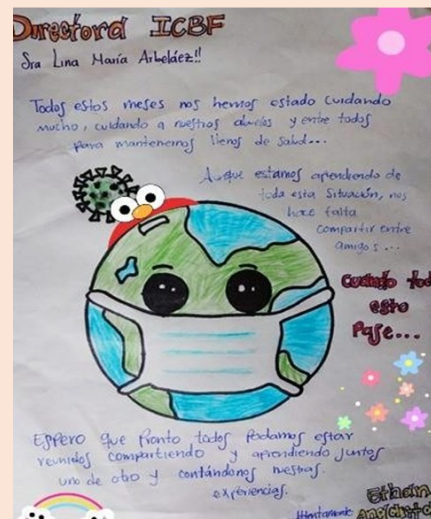 Directora ICBF
Sra Lina María Arbeláez!!
Todos estos meses nos hemos estado cuidando
mucho, cuidando a nuestros abuelos y entre todos
para mantenernos llenos de salud...
Aunque estamos aprendiendo de
toda esta situación, nos
hace falta
compartir entre
amigos...
Cuando tod
esto
Pase...
Espero que Pronto todos Podamos estar
reunidos compartiendo y aprendiendo juntos
uno de otro y contándonos nuestras
experiencias.
Atentamente: